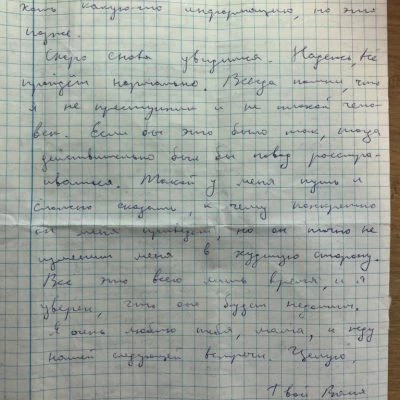 хоть какую-то информацию, но это
позже.
Скоро снова увидимся. Надеюсь, всё
пройдёт нормально. Всегда помни, что
я не преступник и не плохой чело-
век. Если бы это было так, тогда
действительно был бы повод расстра-
иваться. Такой у меня путь и
сложно сказать, к чему конкретно
он меня приведёт, но он точно не
изменит меня в худшую сторону.
Все это всего лишь время, и я
уверен, что оно будет недолгим.
Я очень люблю тебя, мама, и жду
нашей следующей встречи. Целую,
Твой Ваня